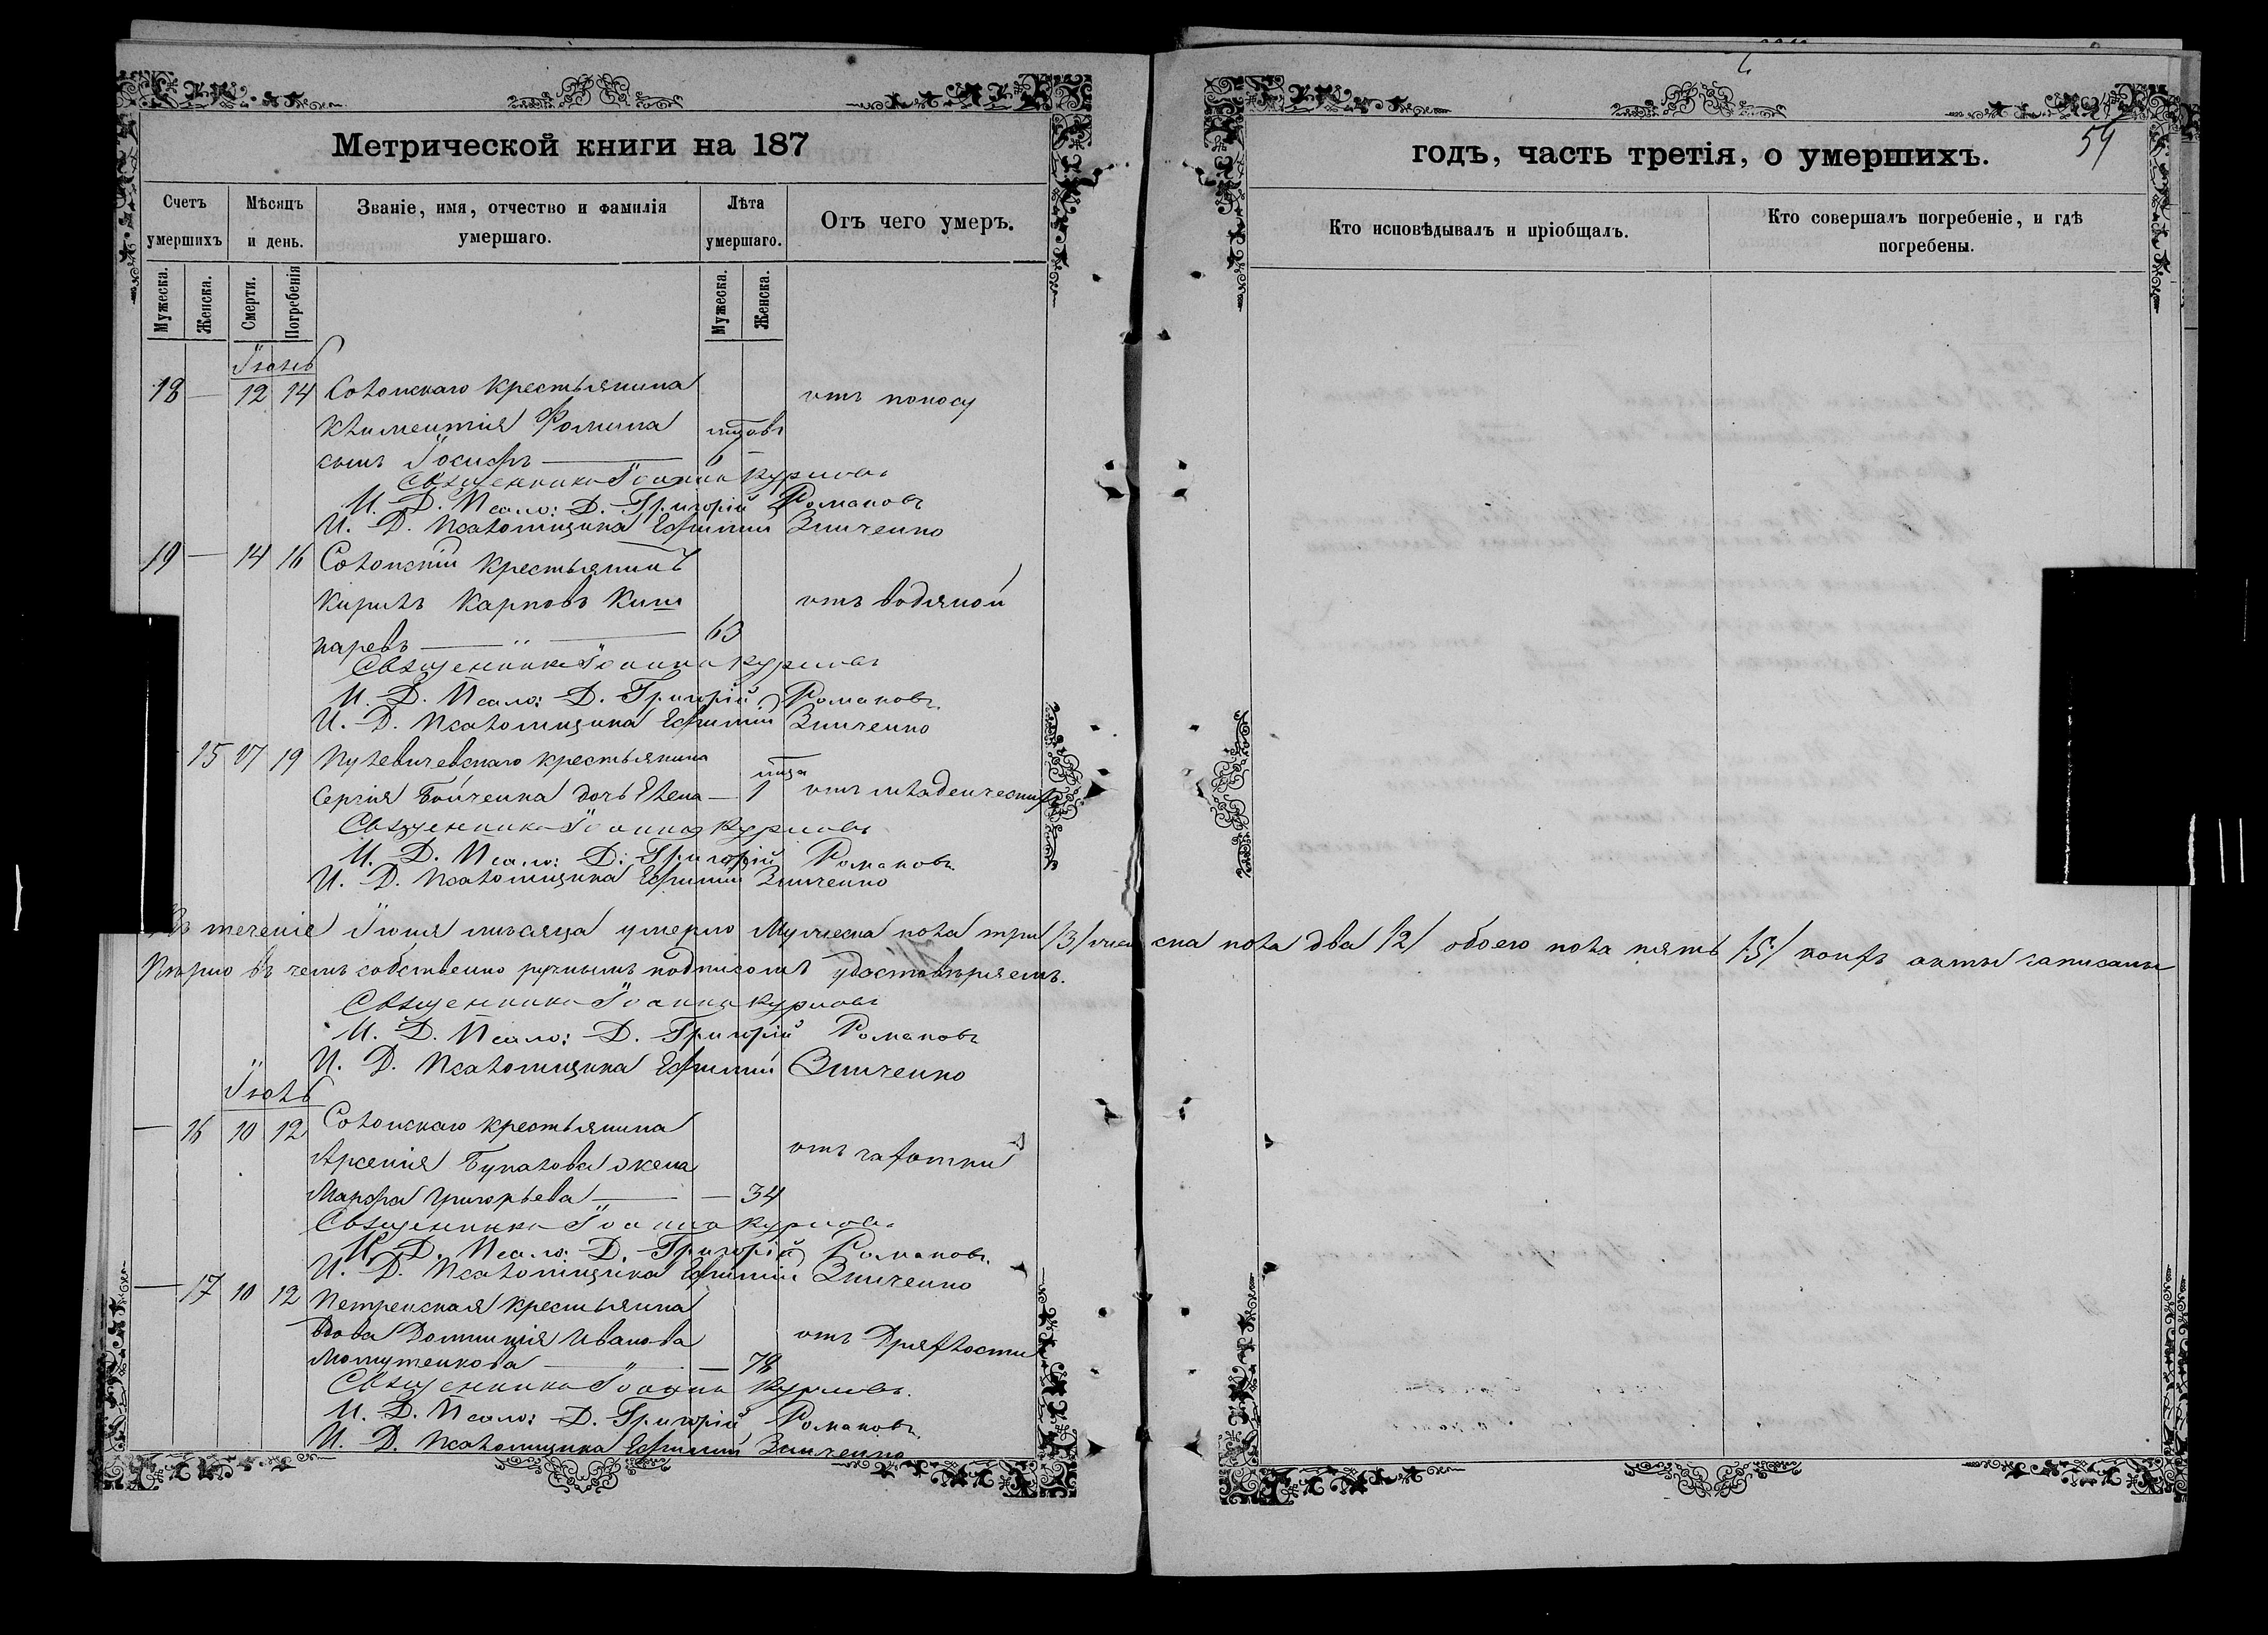 Метрической книги на 187
годъ, часть третія, о умершихъ.
59
Счетъ умершихъ
Мѣсяцъ и день.
Званіе, имя, отчество и фамилія умершаго.
Лѣта умершаго.
Отъ чего умеръ.
Кто исповѣдывалъ и пріобщалъ.
Кто совершалъ погребеніе, и гдѣ погребены.
Мужеска.
Женска.
Смерти.
Погребенія
Мужеска.
Женска.
Іюнь
18 — 12 14 Солонскаго крестьянина отъ поносу
Климентія Фомина
сынъ Іосифъ — 6 —
Священникъ Іоаннъ Курловъ
И. Д. Псало: Д. Григорій Романовъ
И. Д. Псаломщика Ефимій Зинченко
19 — 14 16 Солонскій крестьянинъ
Кирилъ Карповъ отъ водяной
паревъ — " — 63
Священникъ Іоаннъ Курловъ
И. Д. Псало: Д. Григорій Романовъ
И. Д. Псаломщика Ефимій Зинченко
15 17 19 крестьянина
Сергія Бойченка дочь Елена — 1 отъ младенческой
Священникъ Іоаннъ Курловъ
И. Д. Псало: Д: Григорій Романовъ
И. Д. Псаломщика Ефимій Зинченко
Въ теченіе Іюня мѣсяца умерло Мужеска пола три /3/ женска пола два /2/ обоего пола пять /5/ акты записаны
вѣрно въ чемъ собственно ручнымъ подписомъ удостовѣряемъ.
Священникъ Іоаннъ Курловъ
И. Д. Псало: Д. Григорій Романовъ
И. Д. Псаломщика Ефимій Зинченко
Іюль
— 16 10 12 Солонскаго крестьянина
Арсенія Букатова жена отъ чахотки
Марфа Григорьева — — 34
Священникъ Іоаннъ Курловъ
И. Д. Псало: Д. Григорій Романовъ
И. Д. Псаломщика Ефимій Зинченко
— 17 10 12 Петренская крестьянина
вдова Домникія Иванова отъ Дряхлости
— " — 78
Священникъ Іоаннъ Курловъ
И. Д. Псало: Д. Григорій Романовъ
И. Д. Псаломщика Ефимій Зинченко